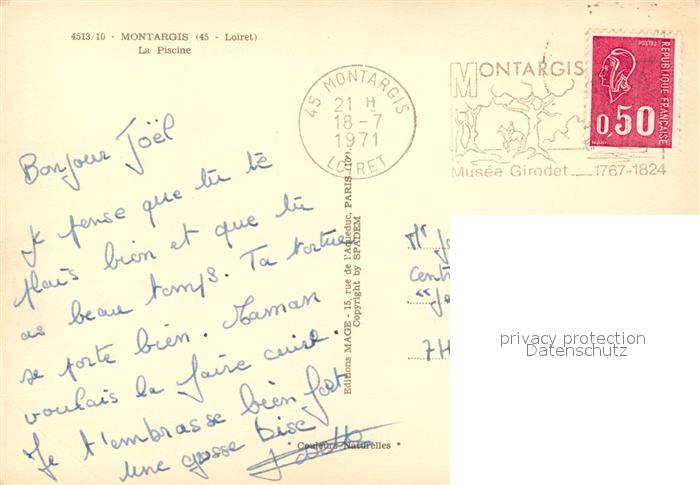 4513/10 - MONTARGIS (45 - Loiret)
La Piscine
45 MONTARGIS
21 H
18-7
1971
LOIRET
MONTARGIS
Musée Girodet 1767-1824
POSTES
REPUBLIQUE FRANÇAISE
0,50
Bonjour Joël
Je pense que tu te
plais bien et que tu
as beau temps. Ta tortue
se porte bien. Maman
voulais la faire cuire.
Je t'embrasse bien fort
une grosse bise
Editions MAGE - 15, rue de l'Aqueduc, PARIS (10e)
Copyright by SPADEM
" Couleurs Naturelles "
Mr
centr
privacy protection
Datenschutz